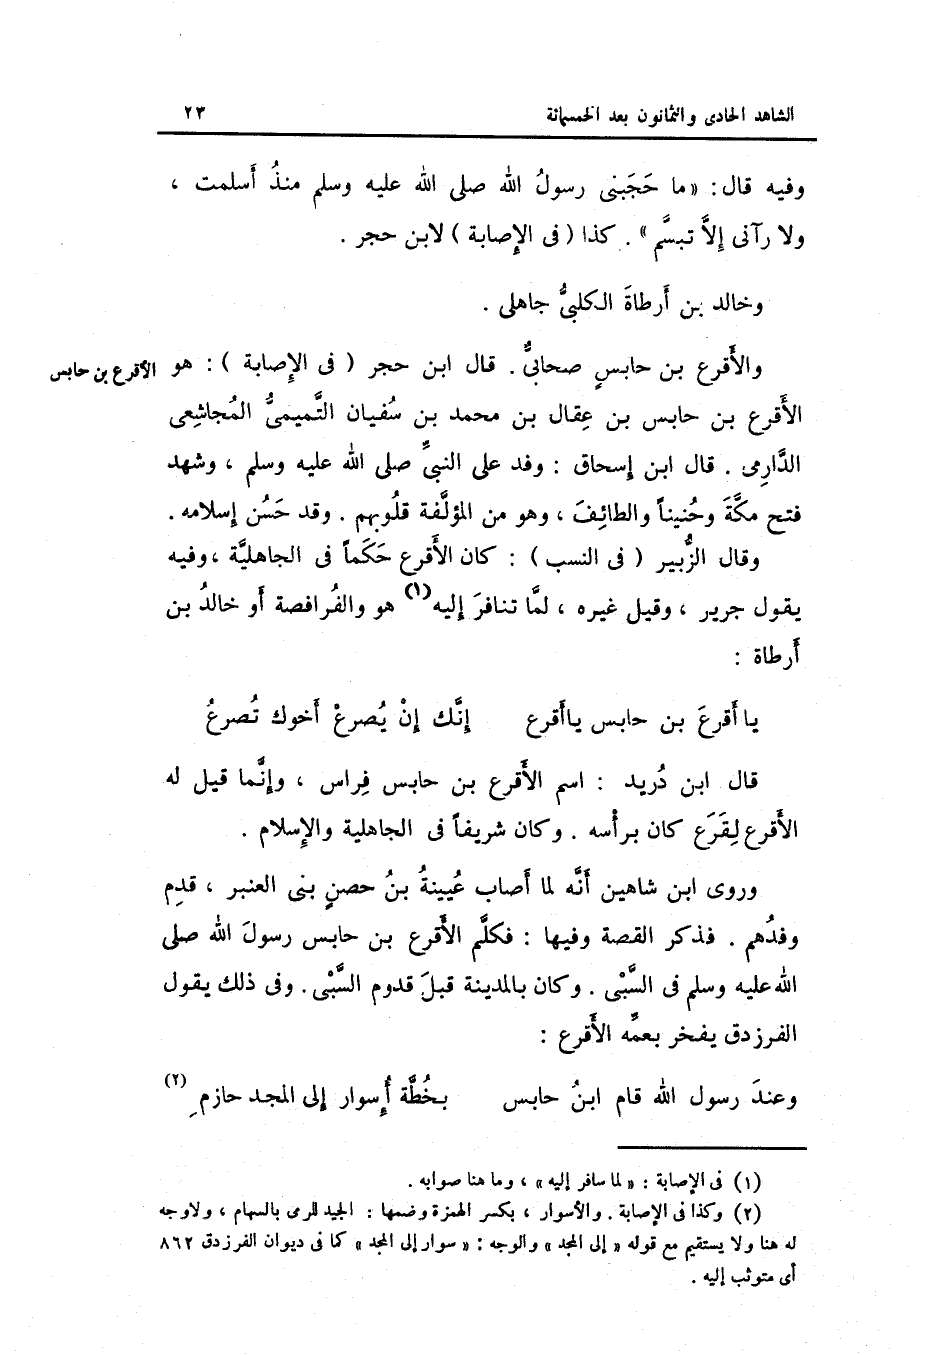 الشاهد الحادى والثمانون بعد الخمسمائة ٢٣
وفيه قال : « ما حَجَبنى رسولُ الله صلى الله عليه وسلم منذُ أسلمت ،
ولا رآنى إلاَّ تبسَّم » . كذا ( فى الإصابة ) لابن حجر .
وخالد بن أَرطاةَ الكلبىُّ جاهلى .
والأَقرع بن حابسٍ صحابىٌّ . قال ابن حجر ( فى الإصابة ) : هو
الأقرع بن حابس
الأَقرع بن حابس بن عِقال بن محمد بن سُفيان التَّميمىُّ المُجاشِعى
الدَّارِمى . قال ابن إسحاق : وفد على النبىِّ صلى الله عليه وسلم ، وشهد
فتح مكَّةَ وحُنيناً والطائِفَ ، وهو من المؤلَّفة قلُوبهم . وقد حَسُن إسلامه .
وقال الزُّبير ( فى النسب ) : كان الأَقرع حَكَماً فى الجاهليَّة ، وفيه
يقول جرير ، وقيل غيره ، لمَّا تنافرَ إليه (١) هو والفُرافصة أو خالدُ بن
أَرطاة :
يا أَقرعَ بن حابس ياأَقرع إنَّك إنْ يُصرعْ أَخوك تُصرعُ
قال ابن دُريد : اسم الأَقرع بن حابس فِراس ، وإنَّما قيل له
الأَقرع لِقَرَع كان برأْسه . وكان شريفاً فى الجاهلية والإسلام .
وروى ابن شاهين أَنَّه لما أَصاب عُيينةُ بنُ حصنٍ بنى العنبر ، قدِم
وفدُهم . فذكر القصة وفيها : فكلَّم الأَقرع بن حابس رسولَ الله صلى
الله عليه وسلم فى السَّبْى . وكان بالمدينة قبلَ قدوم السَّبْى . وفى ذلك يقول
الفرزدق يفخر بعمِّه الأَقرع :
وعندَ رسول الله قام ابنُ حابس بخُطَّة أُسوار إلى المجد حازمِ (٢)
(١) فى الإصابة : « لما سافر إليه » ، وما هنا صوابه .
(٢) وكذا فى الإصابة . والأسوار ، بكسر الهمزة وضمها : الجيد للرمى بالسهام ، ولا وجه
له هنا ولا يستقيم مع قوله « إلى المجد » والوجه : « سوار إلى المجد » كما فى ديوان الفرزدق ٨٦٢
أى متوثب إليه .